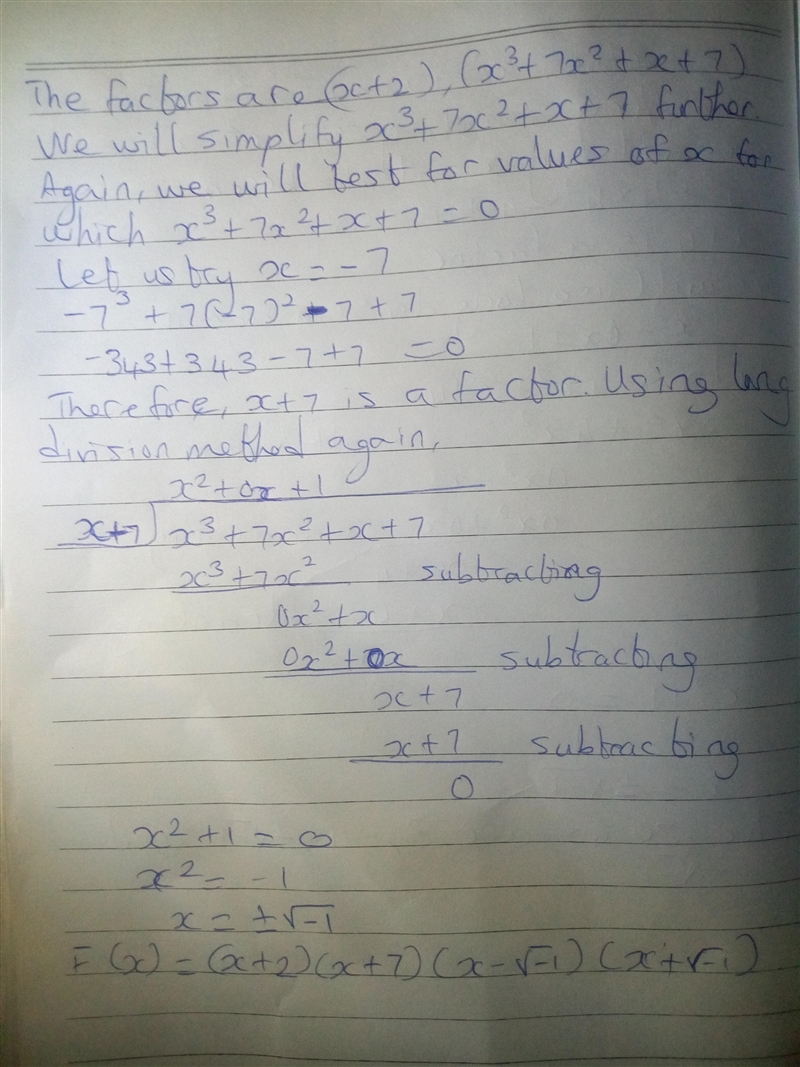 The factors are (x+2), (x³+7x²+x+7)
We will simplify x³+7x²+x+7 further.
Again, we will test for values of x for
which x³+7x²+x+7=0
Let us try x=-7
-7³+7(-7)²-7+7
-343+343-7+7 =0
Therefore, x+7 is a factor. Using long
division method again,
x²+0x+1
x+7)x³+7x²+x+7
x³+7x² subtracting
0x²+x
0x²+0x subtracting
x+7
x+7 subtracting
0
x²+1=0
x²=-1
x=±√-1
F(x)=(x+2)(x+7)(x-√-1)(x+√-1)